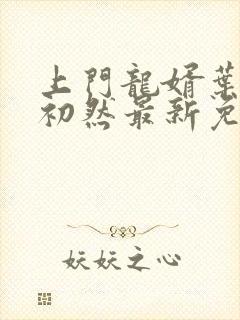 上門龍婿葉
初然最新免
妖妖之心